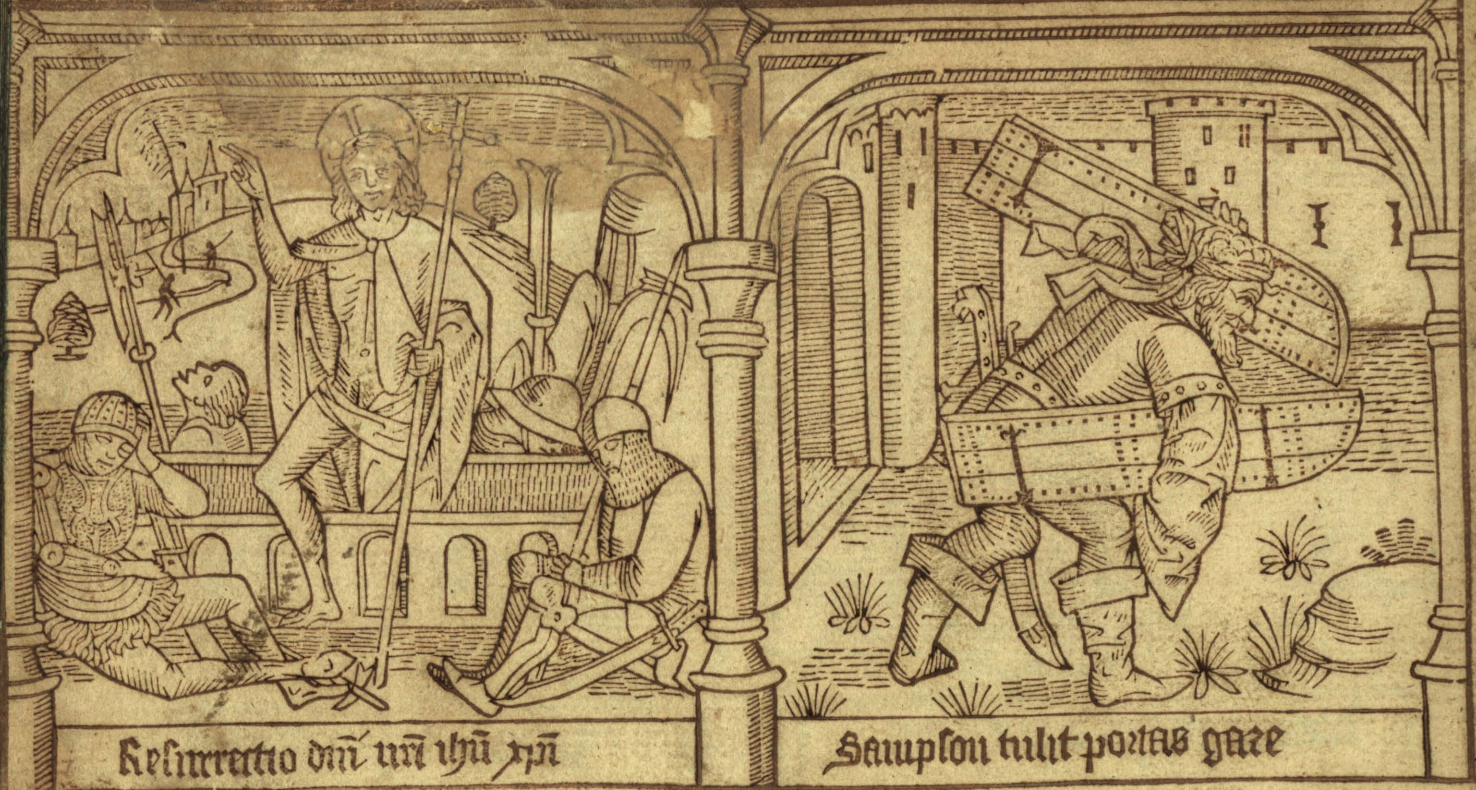 Resurrectio dnī nrī ihū xpī
Sampson tulit portas gaze